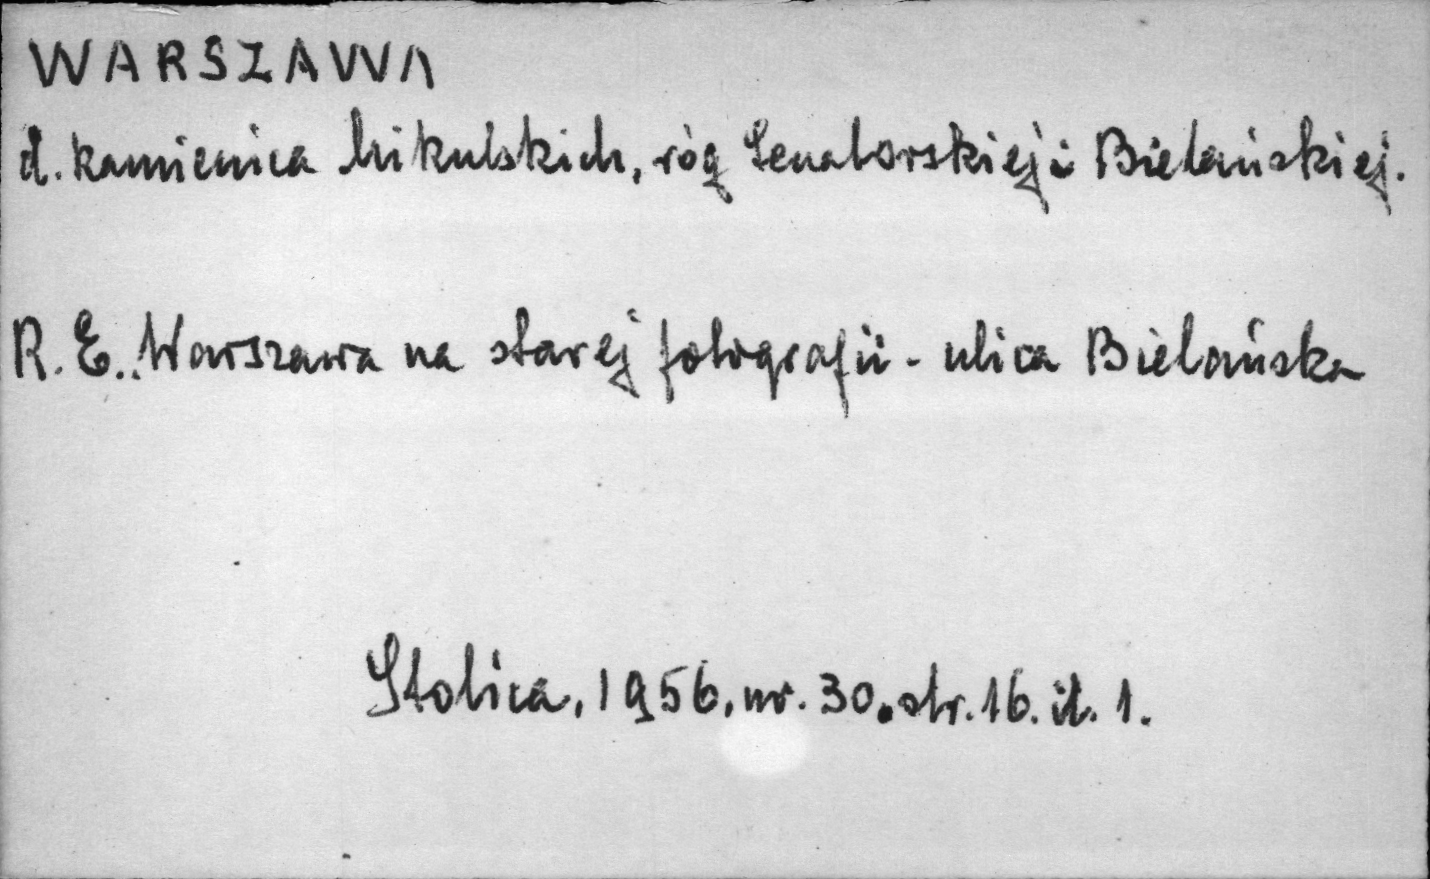 WARSZAWA
d. kamienica Mikulskich, róg Senatorskiej i Bielańskiej.
R. E.. Warszawa na starej fotografii - ulica Bielańska
Stolica, 1956, nr. 30. str. 16. il. 1.